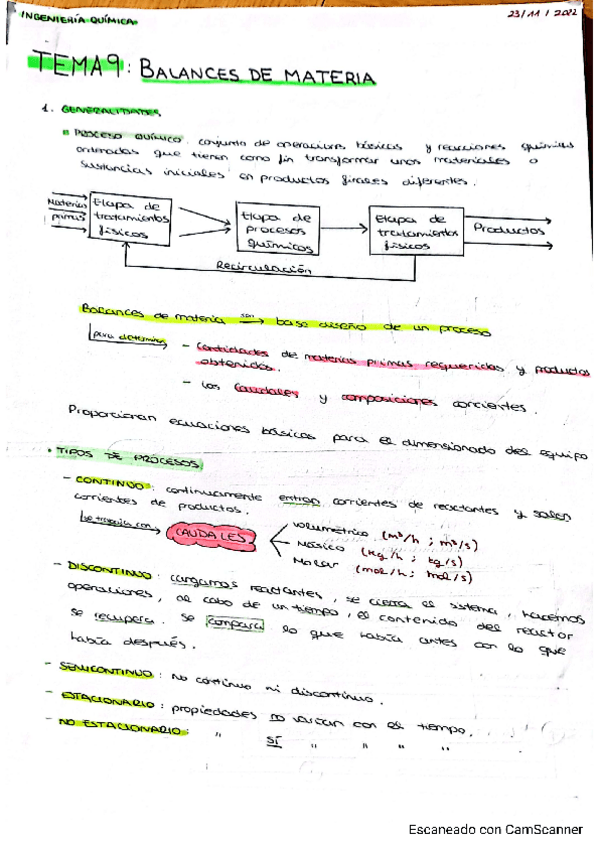 INGENIERÍA QUÍMICA
23/11/2022
TEMA 9: BALANCES DE MATERIA
1. GENERALIDADES.
PROCESO QUÍMICO: conjunto de operaciones básicas y reacciones químicas
ordenadas que tienen como fin transformar unos materiales o
sustancias iniciales en productos finales diferentes.
Materias primas
Etapa de tratamientos físicos
Etapa de procesos químicos
Etapa de tratamientos físicos
Productos
Recirculación
Balances de materia son → base diseño de un proceso
para determinar
- Cantidades de materias primas requeridas y productos
obtenidos.
- Los caudales y composiciones corrientes.
Proporcionan ecuaciones básicas para el dimensionado del equipo
• TIPOS DE PROCESOS
- CONTINUO: continuamente entran corrientes de reactantes y salen
corrientes de productos.
se trabaja con → CAUDALES
Volumétrico (m³/h ; m³/s)
Másico (kg/h ; kg/s)
Molar (mol/h ; mol/s)
- DISCONTINUO: cargamos reactantes, se cierra el sistema, hacemos
operaciones, al cabo de un tiempo, el contenido del reactor
se recupera. Se compara lo que había antes con lo que
había después.
- SEMICONTINUO: no continuo ni discontinuo.
- ESTACIONARIO: propiedades no varían con el tiempo.
- NO ESTACIONARIO: " SÍ " " " "
Escaneado con CamScanner